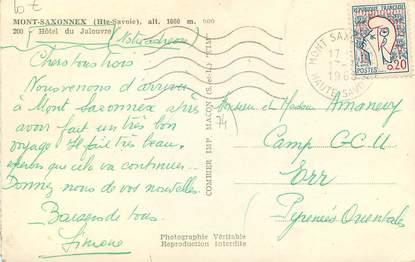 10 €
MONT-SAXONNEX (Hte-Savoie), alt. 1000 m.
200 Hôtel du Jalouvre (Notre adresse)
Chers tous trois
Nous venons d'arriver
à Mont Saxonnex après
avoir fait un très bon
voyage. Il fait très beau,
espérons que cela va continuer.
Donnez nous de vos nouvelles
Baisers de tous.
Simone
Photographie Véritable
Reproduction Interdite
COMBIER IMP. MACON (S.-et-L.)
74
RÉPUBLIQUE FRANÇAISE
POSTES 0,20
MONT SAXONNEX
17
HAUTE SAVOIE
Monsieur et Madame
Camp G.C.U
Err
Pyrénées Orientales